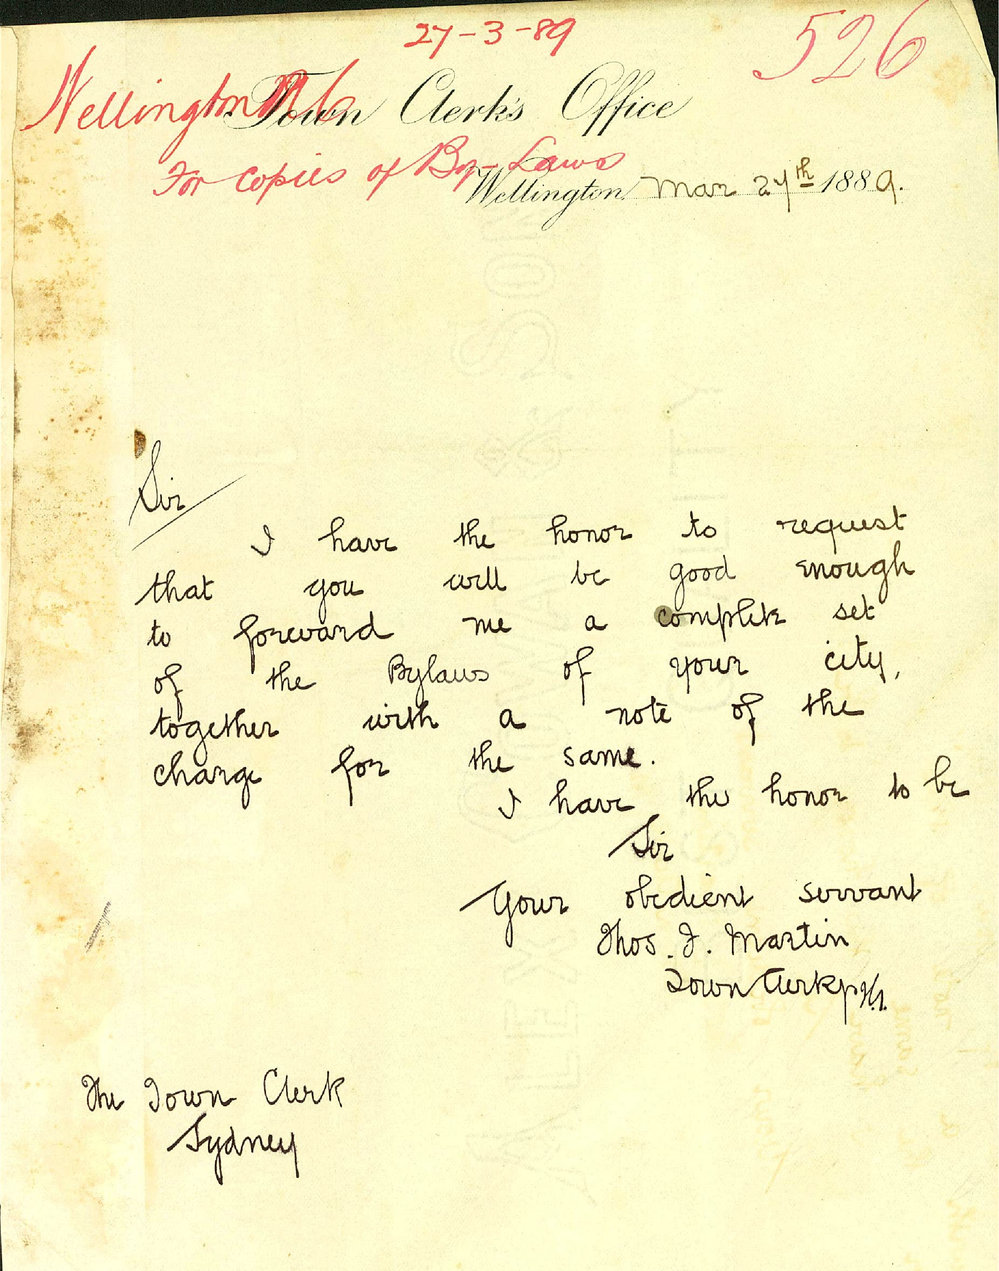 27-3-89
526
Wellington
Town Clerk's Office
For copies of By-Laws
Wellington Mar 27th 1889.
Sir
I have the honor to request
that you will be good enough
to forward me a complete set
of the Bylaws of your city,
together with a note of the
charge for the same.
I have the honor to be
Sir
Your obedient servant
Thos. J. Martin
Town Clerk
The Town Clerk
Sydney